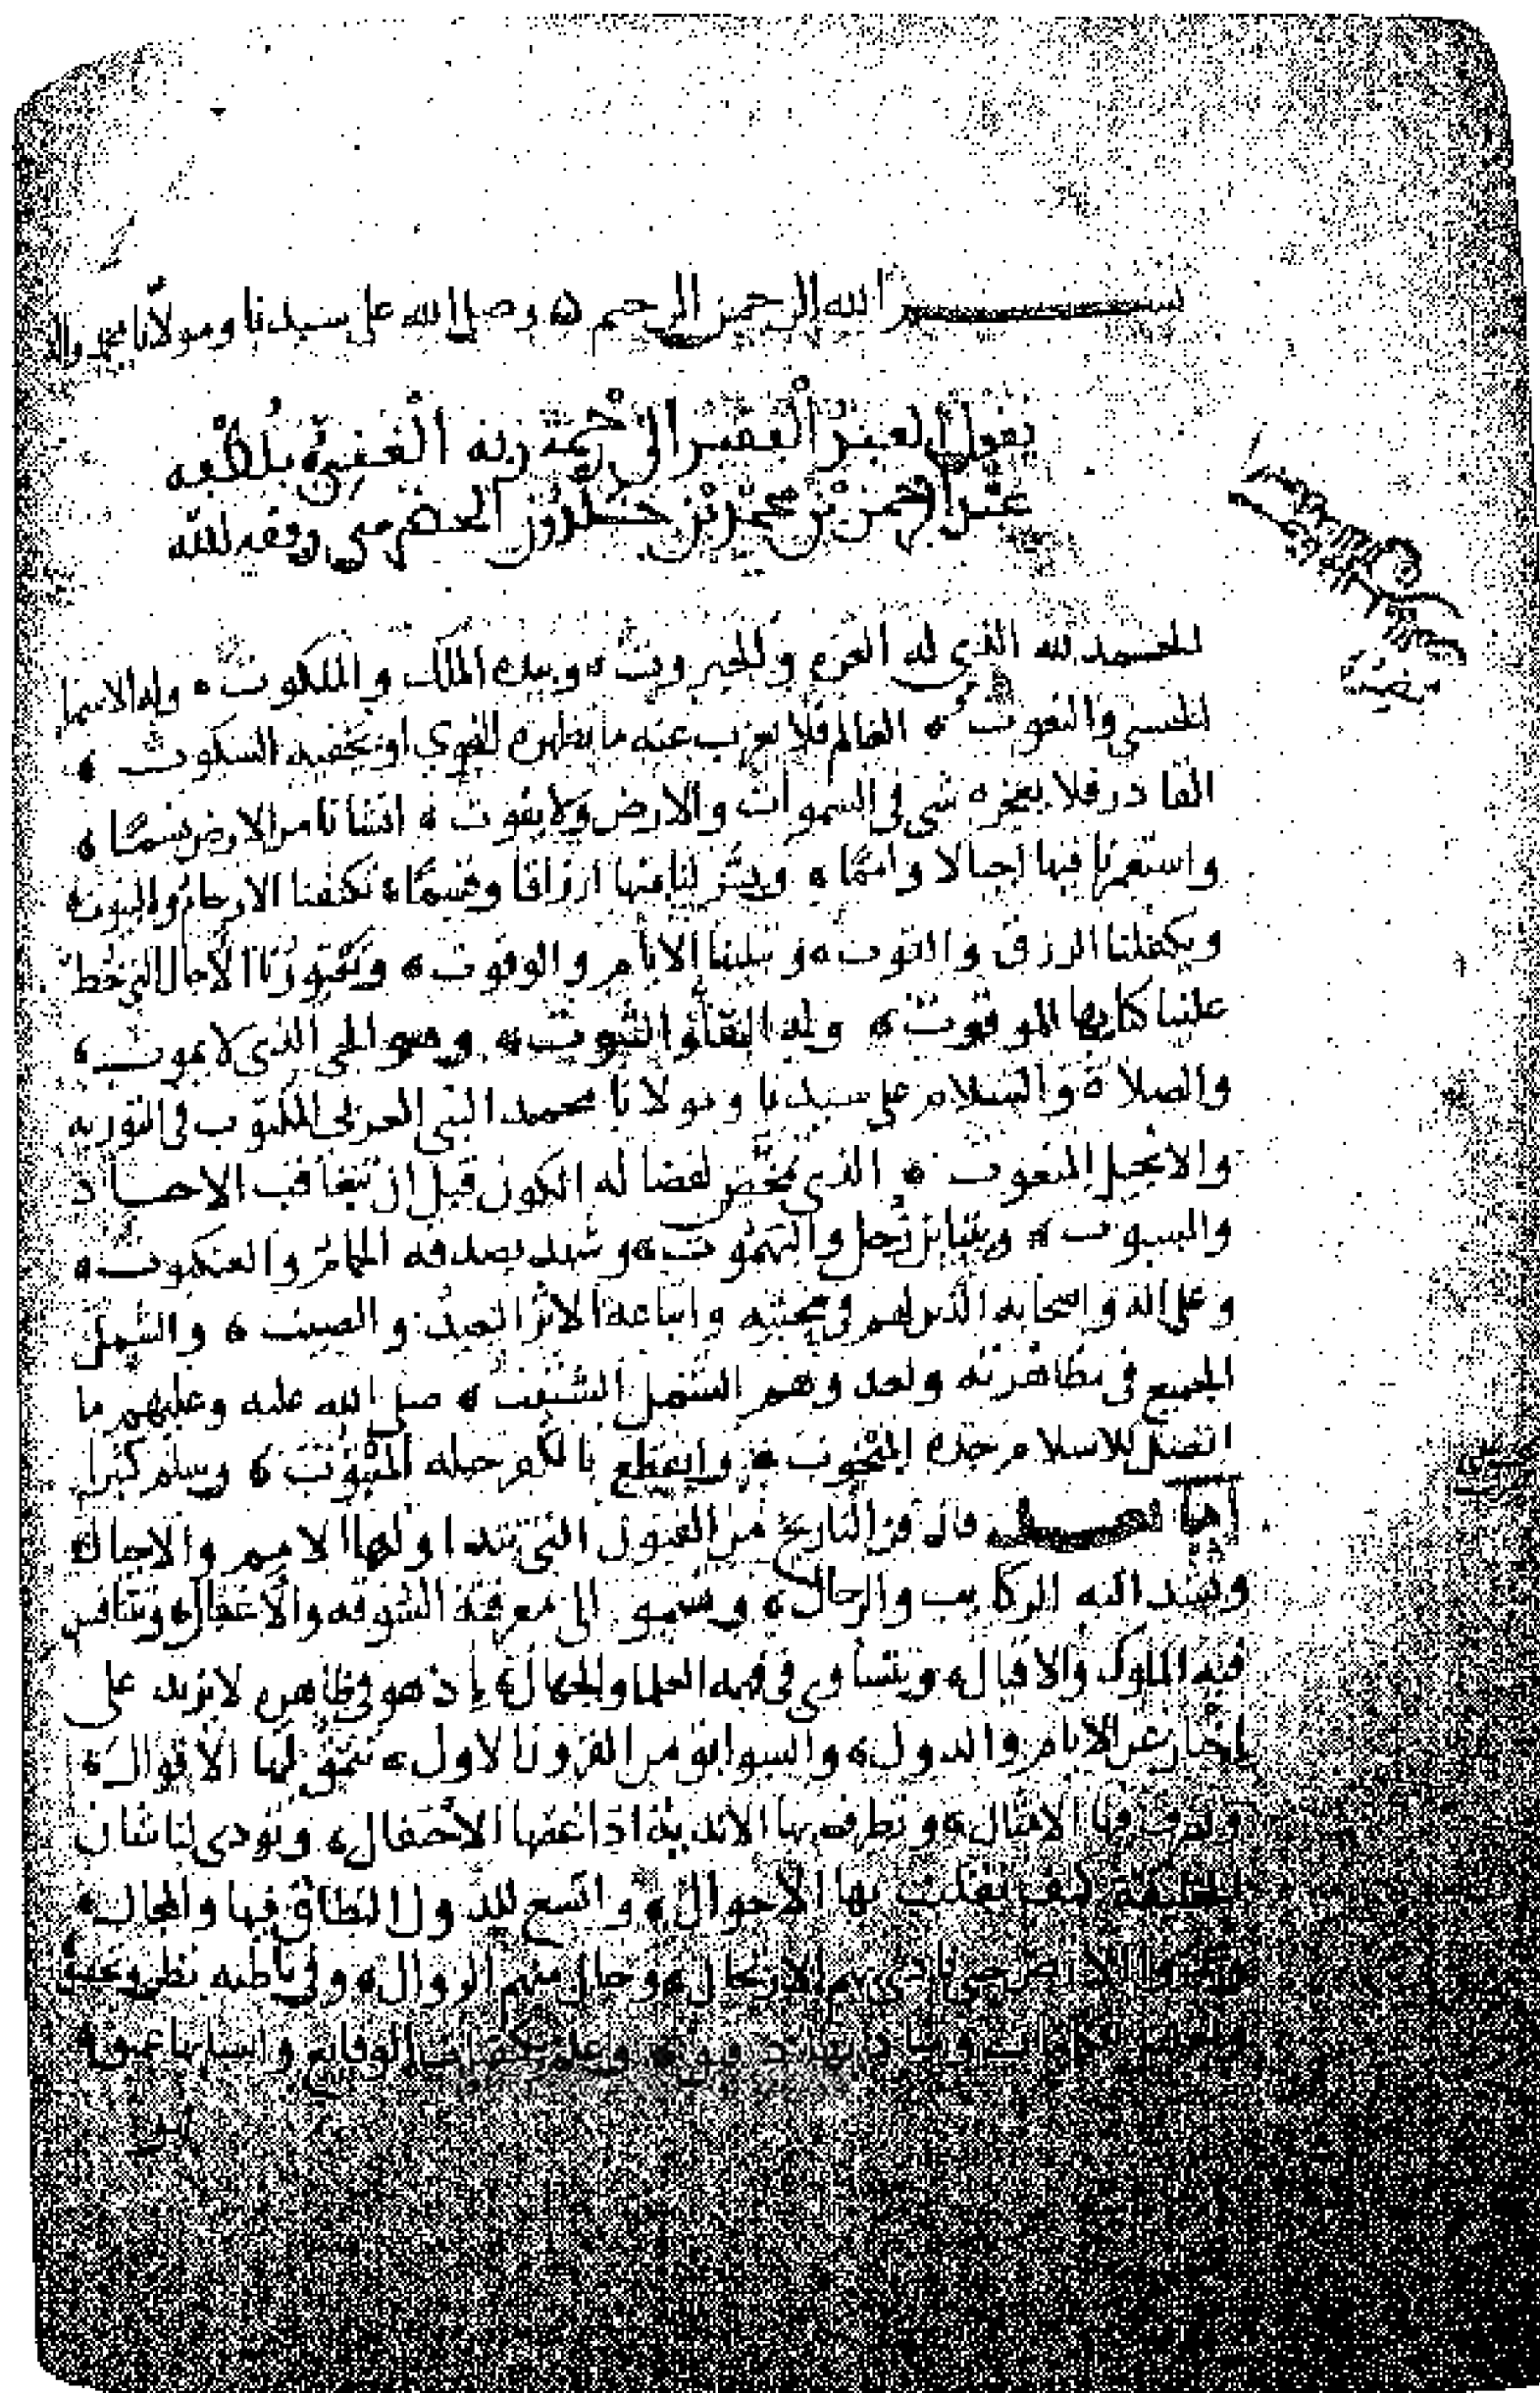 بسم الله الرحمن الرحيم ۵ وصلى الله على سيدنا ومولانا محمد واله
يقول العبد الفقير الى رحمة ربه الغني بلطفه
عبد الرحمن بن محمد بن خلدون الحضرمي وفقه الله
الحمد لله الذي له العزه والجبروت ، وبيده الملك والملكوت ، وله الاسما
الحسنى والنعوت ، العالم فلا يعزب عنه ما تظهره النجوى او يخفيه السكوت ،
القادر فلا يعجزه شى فى السموات والارض ولا يفوت ، انشانا من الارض نسمًا ،
واستعمرنا فيها اجيالا وامما ، ويسر لنا منها ارزاقا وقسمًا ، تكنفنا الارحام والبيوت ،
ويكفلنا الرزق والقوت ، وتبلينا الايام والوقوت ، وتعتورنا الآجال التي خط
علينا كتابها الموقوت ، وله البقأ والثبوت ، وهو الحي الذي لا يموت ،
والصلاة والسلام على سيدنا ومولانا محمد النبي العربي المكتوب في التوريه
والانجيل المنعوت ، الذي تمخض لفصاله الكون قبل ان تتعاقب الاحاد
والسبوت ، ويتباين زحل والبهموت ، وشهد بصدقه الحمام والعنكبوت ،
وعلى اله واصحابه الذين لهم في محبته واتباعه الاثر البعيد والصيت ، والشمل
الجميع في مظاهرته ولعدوهم الشمل الشتيت ، صلى الله عليه وعليهم ما
اتصل للاسلام جده المبخوت ، وانقطع بالكفر حبله المبتوت ، وسلم كثيرا
اما بعد فان فن التاريخ من الفنون التي تتداولها الامم والاجيال
وتشد اليه الركايب والرحال ، وتسمو الى معرفته السوقه والأغفال ، وتتنافس
فيه الملوك والاقيال ، ويتساوى في فهمه العلما والجهال ، إذ هو في ظاهره لا يزيد على
إخبار عن الايام والدول ، والسوابق من القرون الاول ، تنمق لها الأقوال ،
وتصرف فيها الامثال ، وتطرف بها الاندية اذا غصها الأحتفال ، وتودي لنا شان
الخليقة كيف تقلبت بها الأحوال ، واتسع للدول النطاق فيها والمجال ،
وعمروا الارض حتى نادى بهم الارتحال ، وحان منهم الزوال ، وفي باطنه نظر وتحقيق
وتعليل للكاينات ومباديها دقيق ، وعلم بكيفيات الوقايع واسبابها عميق ،